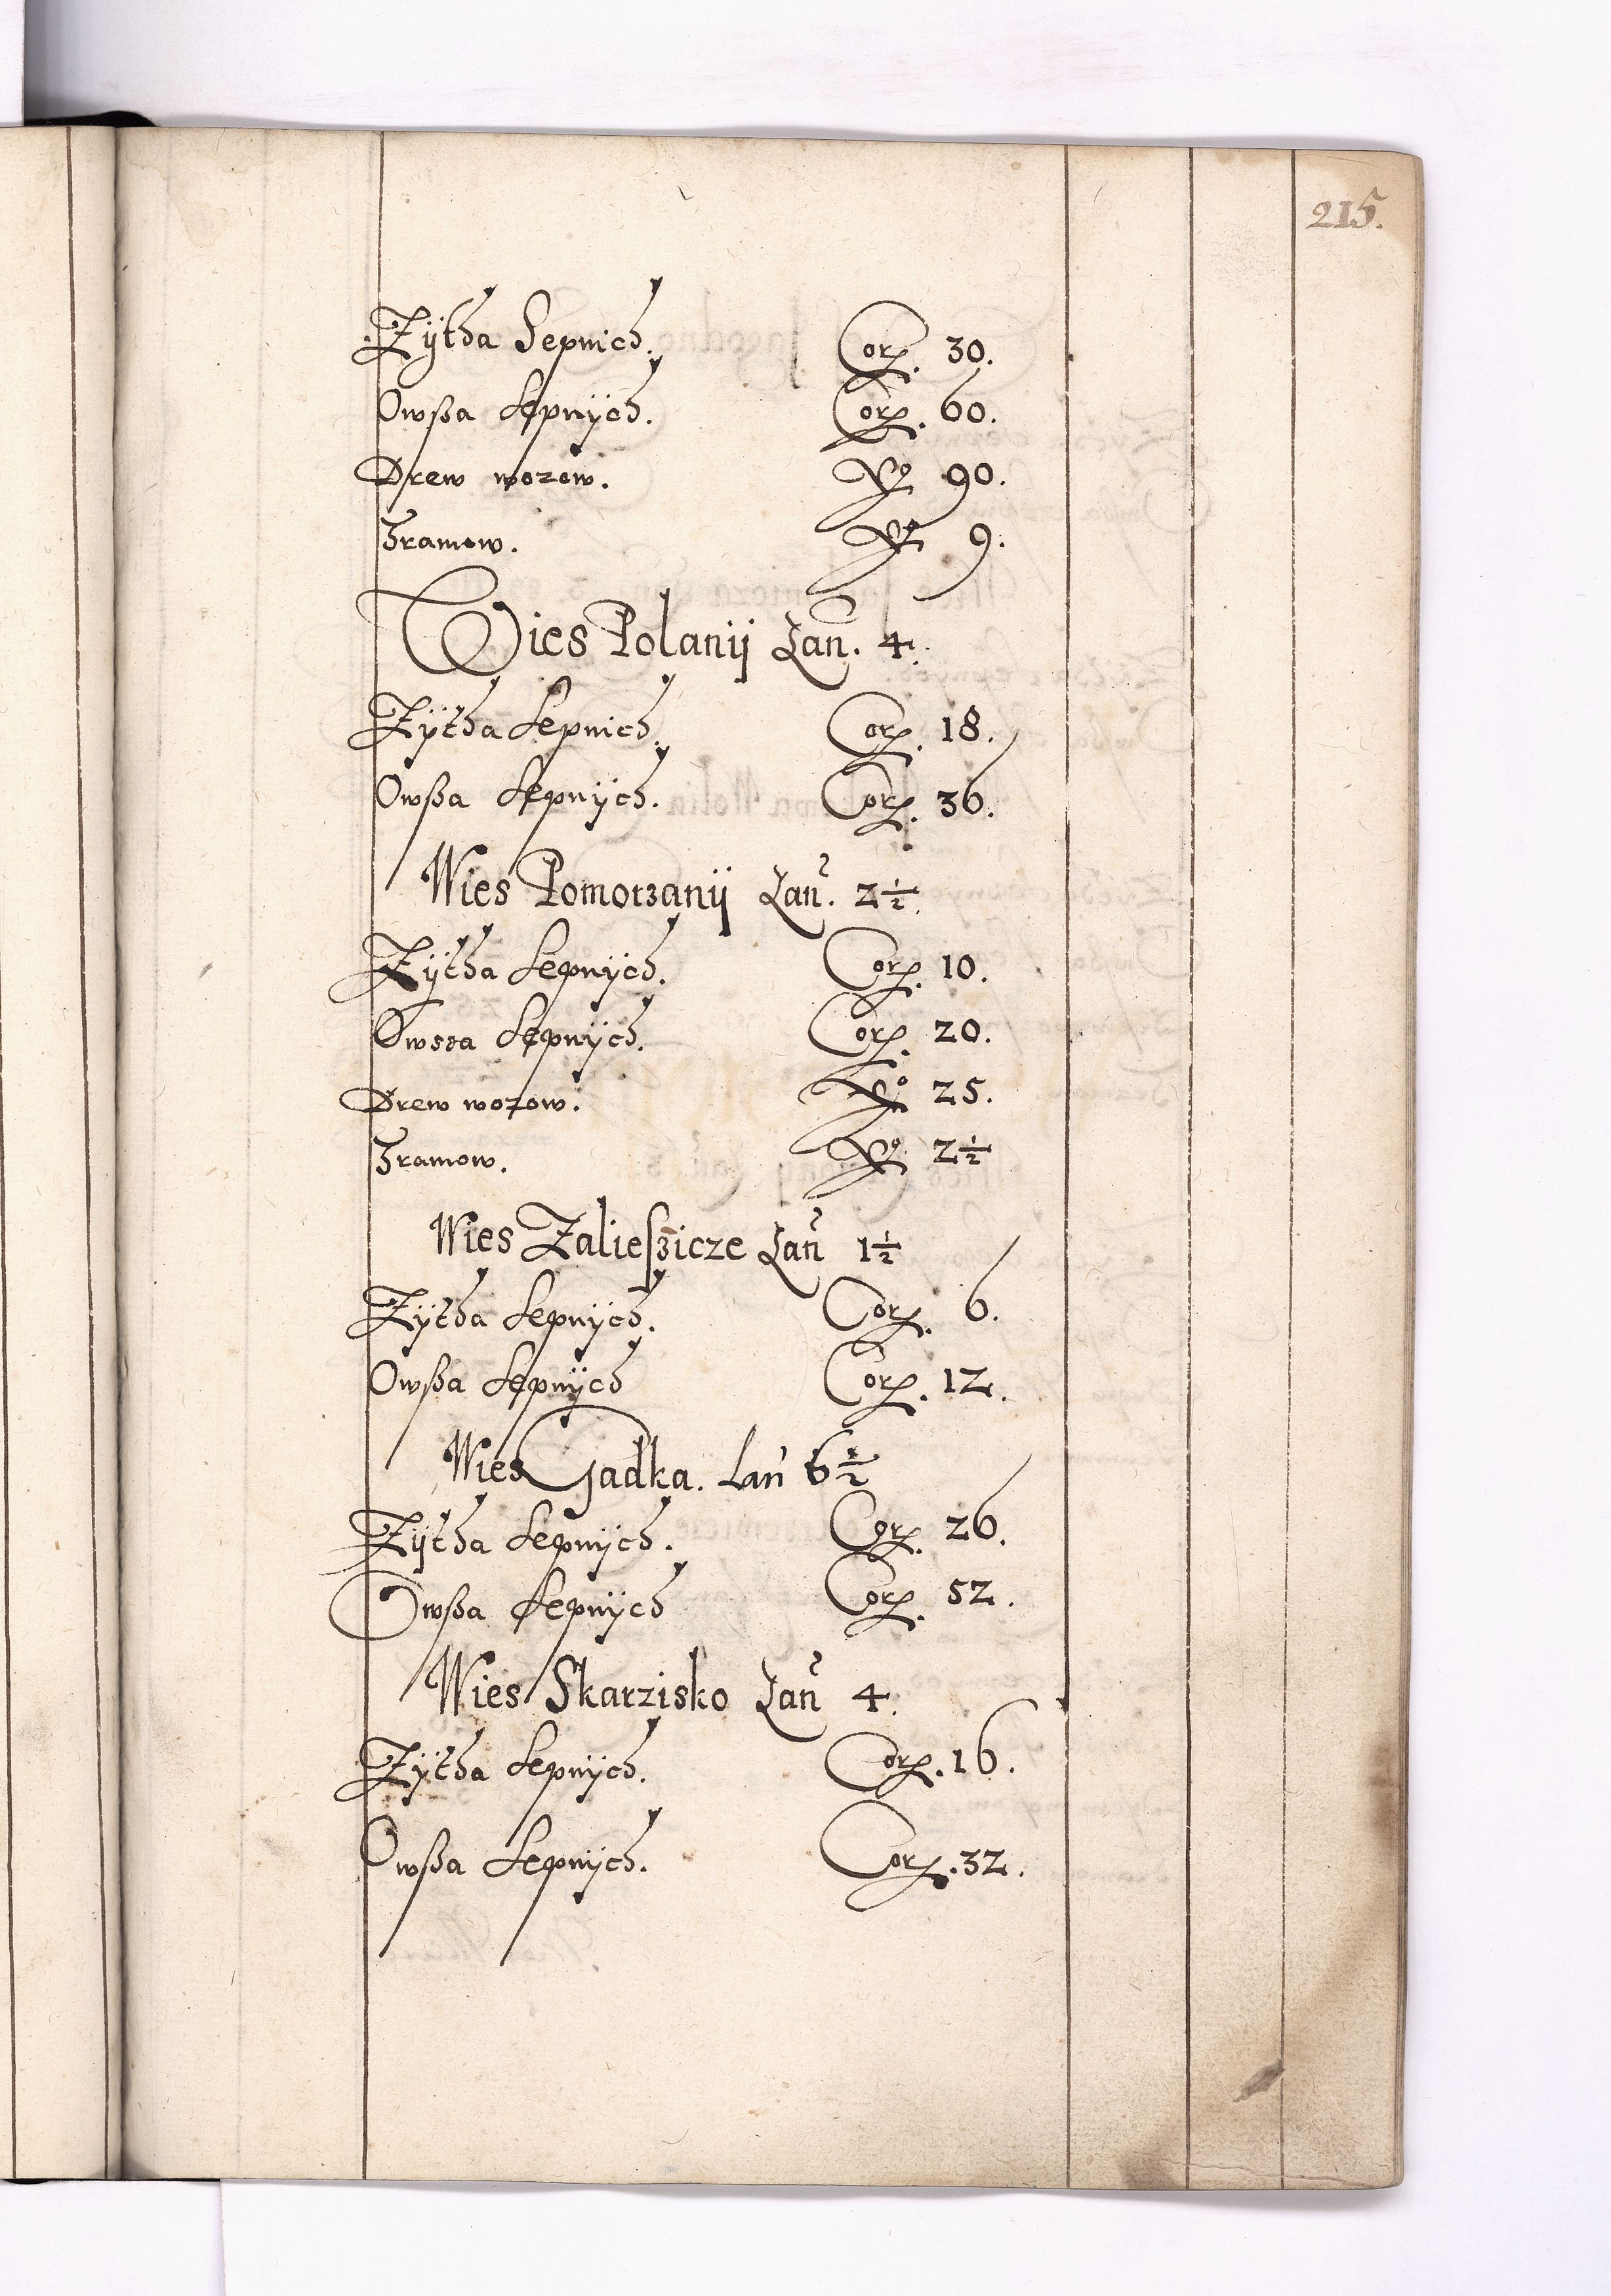 215.
Zÿtha Sepnich. Corz. 30.
Owßa Sepnÿch. Corz. 60.
Drew wozow. No 90.
Tramow. No 9.
Wies Polanij Łan. 4.
Zÿtha Sepnich. Corz. 18.
Owßa Sepnÿch. Corz. 36.
Wies Pomorzanij Łan. 2½.
Zÿtha Sepnÿch. Corz. 10.
Owsza Sepnÿch. Corz. 20.
Drew wozow. No 25.
Tramow. No 2½
Wies Zalieszicze Łan 1½
Zÿtha Sepnÿch. Corz. 6.
Owßa Sepnÿch Corz. 12.
Wies Gadka. Łan 6½
Zÿtha Sepnÿch. Corz. 26.
Owßa Sepnÿch Corz. 52.
Wies Skarzisko Łan 4.
Zÿtha Sepnÿch. Corz. 16.
Owßa Sepnÿch. Corz. 32.